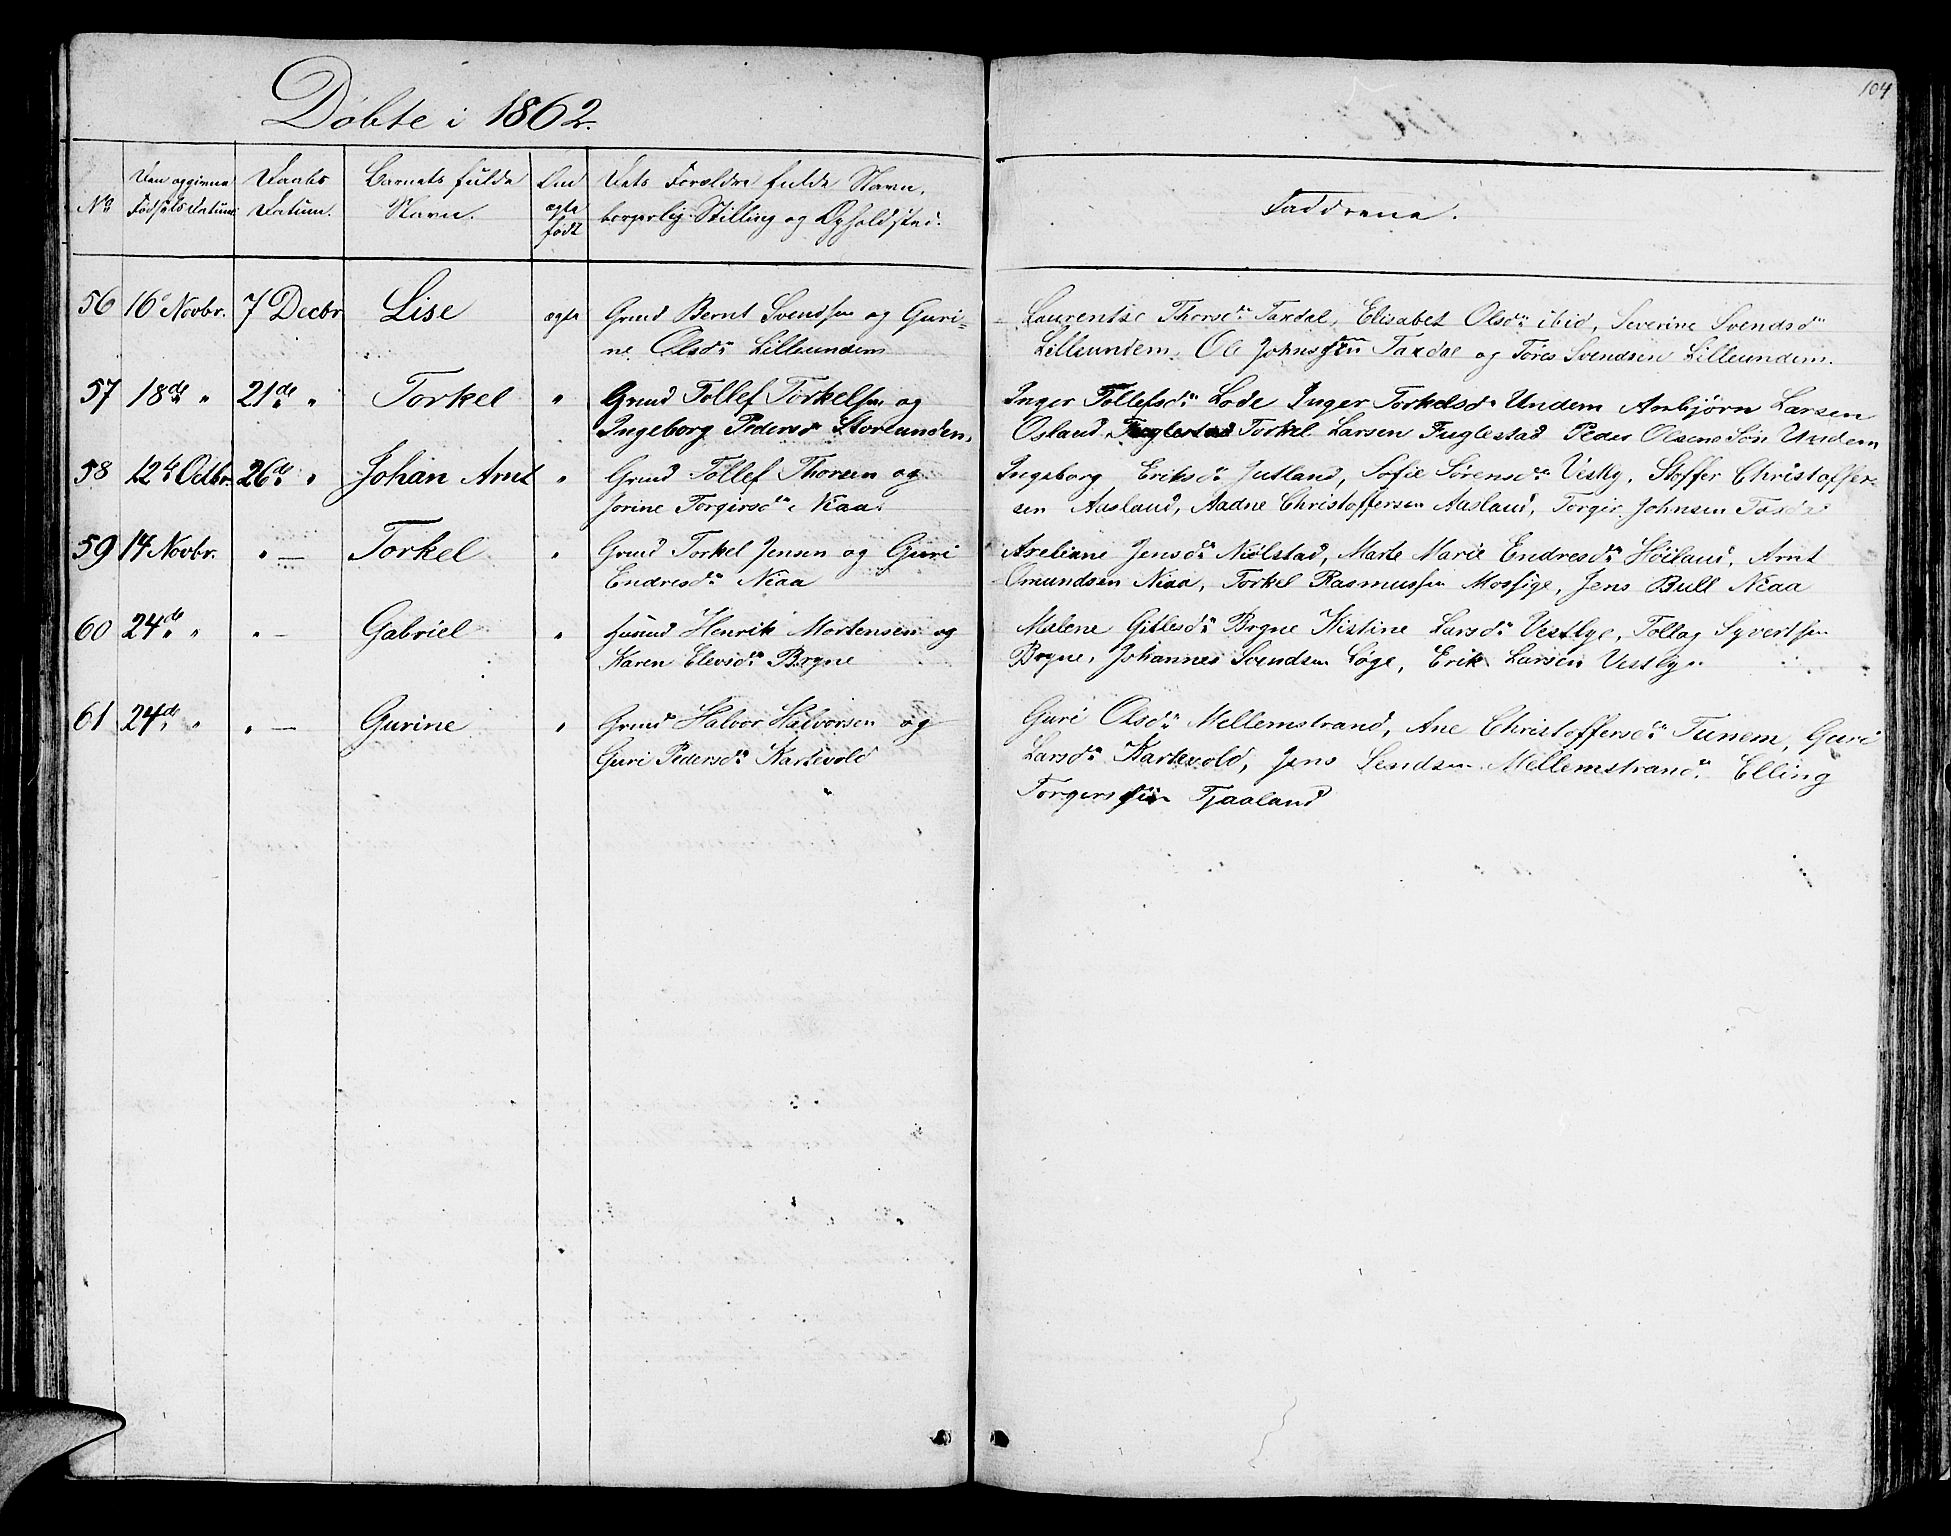 Döbte i 1862.
104
No
Den opgivne Födsels Datum
Daabs Datum.
Barnets fulde Navn.
Om ægte födt
Dets Forældre fulde Navn, borgerlig Stilling og Opholdsted.
Faddrene.
56 16 Novbr. 7 Decbr Lise ægte Grmd Bernt Svendsen og Guri-
ne Olsdr Lilleundem
Laurentse Thorsdr Taxdal, Elisabet Olsdr ibid, Severine Svendsdr
Lilleundem, Ole Johnsen Taxdal og Töres Svendsen Lilleundem.
57 18de " 21de " Torkel " Grmd Tollef Torkelsen og
Ingeborg Pedersd Storeundem,
Inger Tollefsdr Lode Inger Torkelsdr Undem Anbjörn Larsen
Osland, Torkel Larsen Fuglestad Peder Olsens Sön Undem
58 12te Octbr. 26de " Johan Arnt " Grmd Tollef Thorsen og
Jorine Torgirsdr Niaa.
Ingeborg Eriksdr Jutland, Sofie Sörensdr Vestly, Stoffer Christoffer-
sen Aasland, Aadne Christoffersen Aasland, Torgir Johnsen Taxdal
59 14 Novbr. " — Torkel " Grmd Torkel Jensen og Guri
Endresdr Niaa
Areliane Jensdr Niölstad, Marte Marie Endresdr Höiland, Arnt
Omundsen Niaa, Torkel Rasmussen Mossige, Jens Bull Niaa
60 24de " " — Gabriel " Husmd Henrik Mortensen og
Karen Elevsdr Bryne
Malene Gitlesdr Bryne Kistine Larsdr Vestlye, Tollag Syvertsen
Bryne, Johannes Svendsen Löge, Erik Larsen Vestlye
61 24de " " — Gurine " Grmd Halvor Halvorsen og
Guri Pedersdr Kartevold
Guri Olsdr Mellemstrand, Ane Christoffersdr Tunem, Guri
Larsdr Kartevold, Jens Sendsen Mellemstrand. Elling
Torgersen Tjaaland